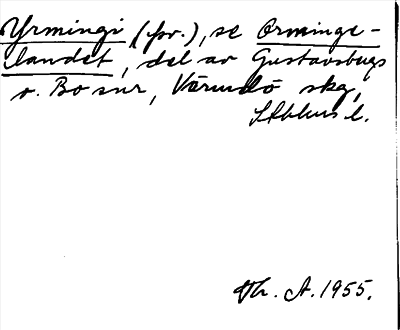 Yrmingi (fsv.), se Orminge-
landet, del av Gustavsbergs
o. Bo snr, Värmdö skg,
Sthlms l.
Th. A. 1955.